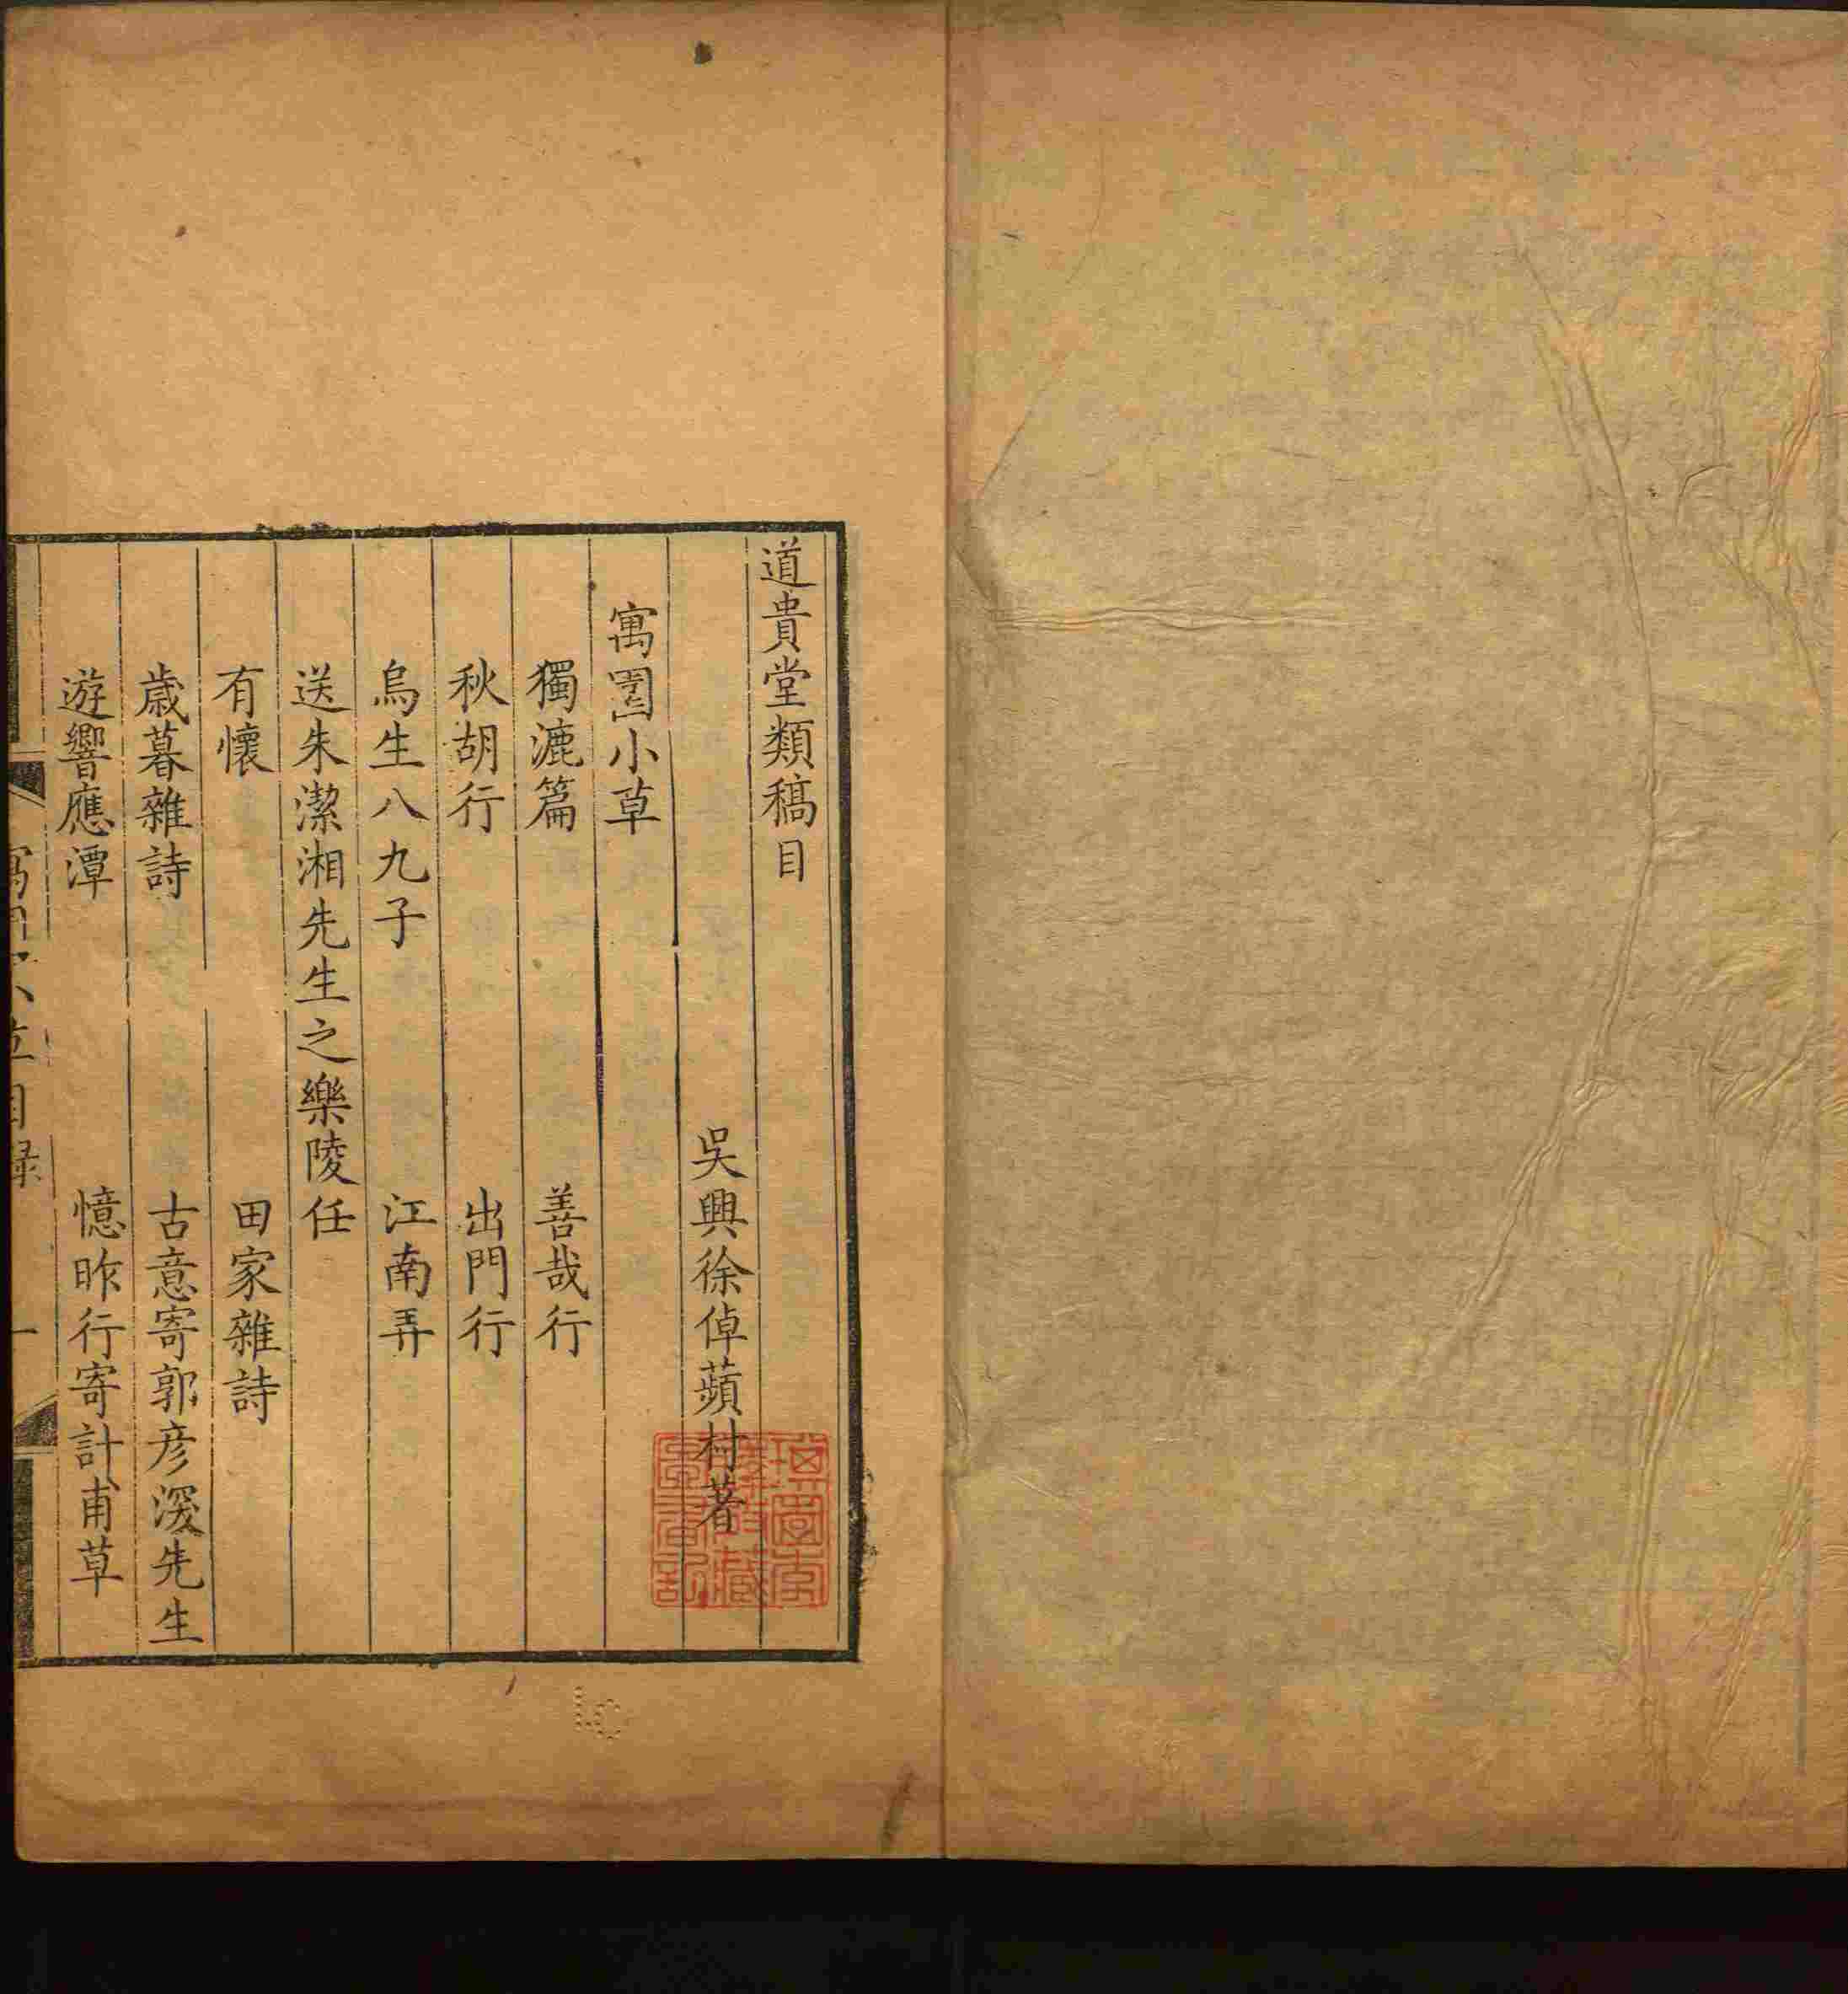 道貴堂類稿目
吳興徐倬蘋村著
寓園小草
獨漉篇　善哉行
秋胡行　出門行
烏生八九子　江南弄
送朱潔湘先生之樂陵任
有懷　田家雜詩
歲暮雜詩　古意寄郭彥深先生
遊響應潭　憶昨行寄計甫草
目錄
一